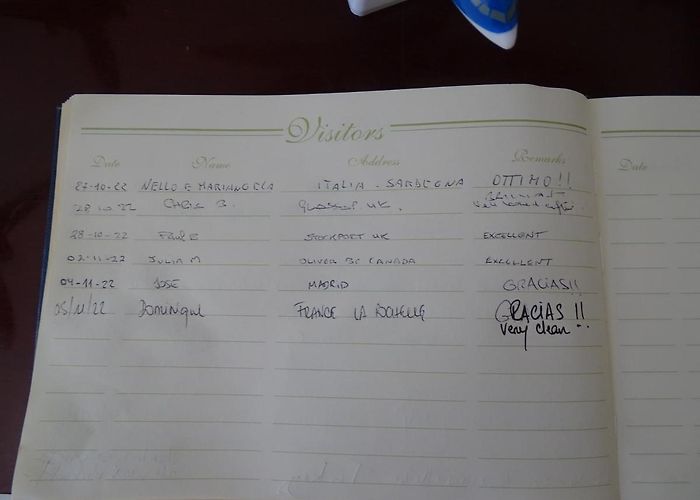 Visitors
Date Name Address Remarks Date
27-10-22 NELLO E MARIANGELA ITALIA - SARDEGNA OTTIMO!!
28.10.22 CHRIS B. UK.
28-10-22 Paul B STOCKPORT UK EXCELLENT
02-11-22 JULIA M OLIVER BC CANADA EXCELLENT
04-11-22 JOSE MADRID GRACIAS!!
05/11/22 Dominique FRANCE LA ROCHELLE GRACIAS !!
Very clean !!